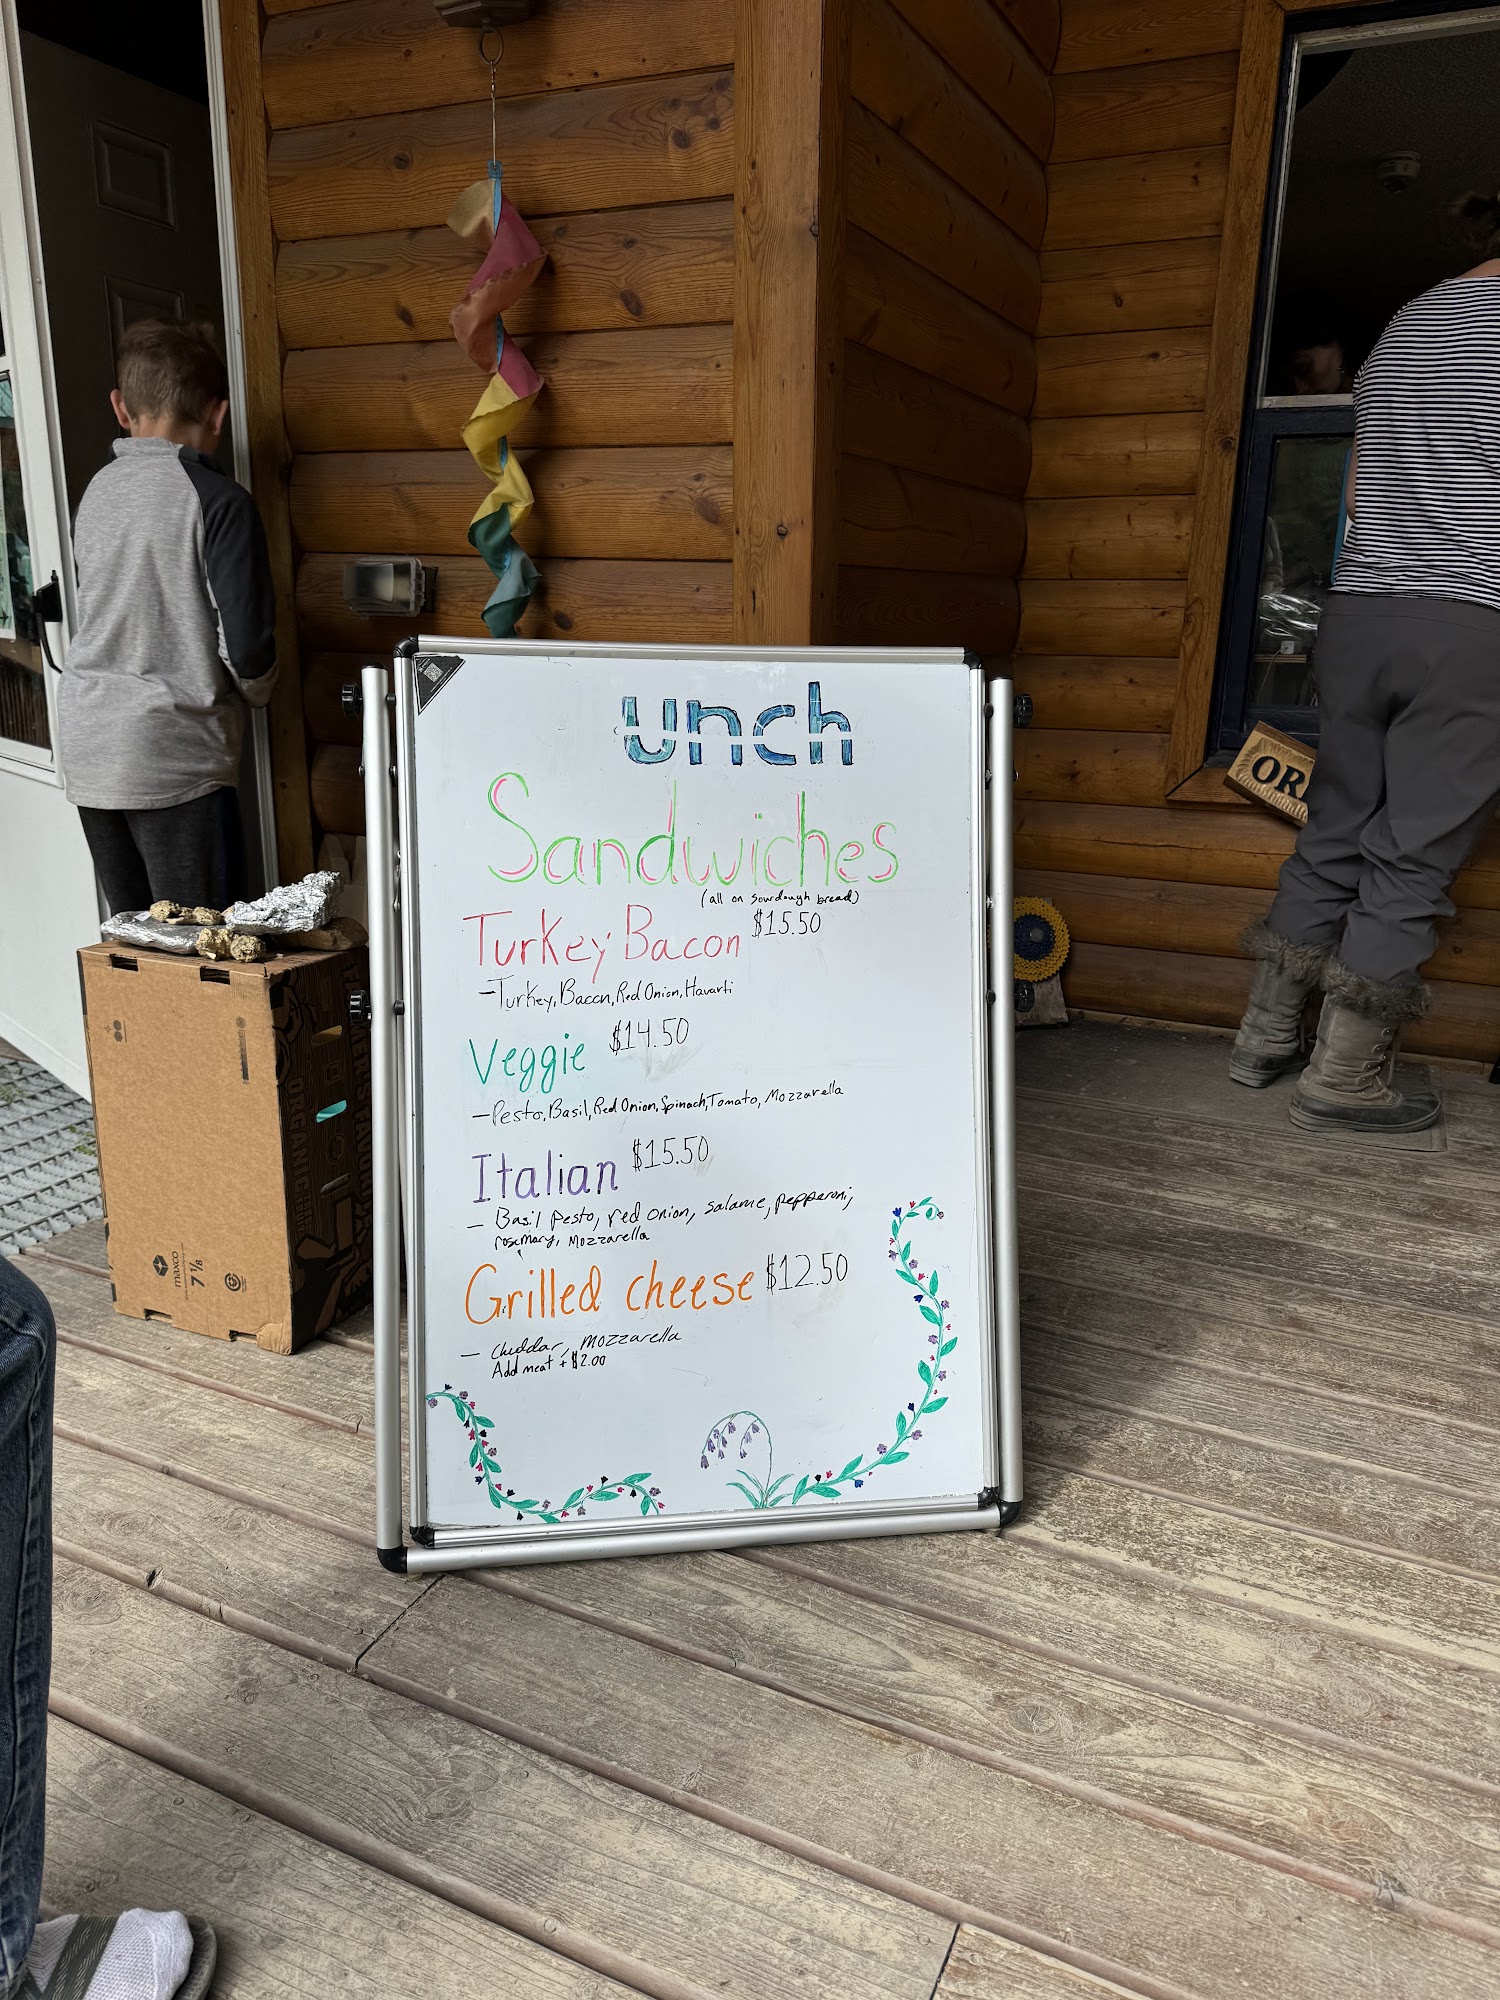 unch
Sandwiches
(all on Sourdough bread)
Turkey Bacon $15.50
- Turkey, Bacon, Red Onion, Havarti
Veggie $14.50
- Pesto, Basil, Red Onion, Spinach, Tomato, Mozzarella
Italian $15.50
- Basil pesto, red onion, salame, pepperoni,
rosemary, Mozzarella
Grilled cheese $12.50
- Cheddar, Mozzarella
Add meat + $2.00
OR
ORGANIC
maxco
7 1/8